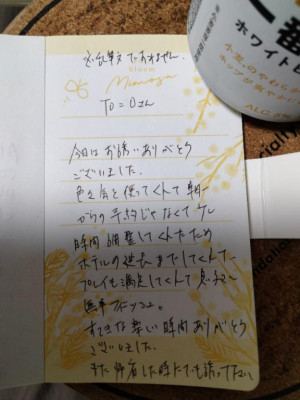 bloom
Mimosa
To=Dさん
今日はお誘いありがとう
ございました。
色々気を使ってくれて朝一
からの予約じゃなくて
時間調整してくれたため
ホテルの延長までしてくれて、
プレイも満足してくれて息子
フィニッシュ。
すてきな楽しい時間ありがとう
ございました。
また帰省した時にでも誘ってください
番
ホワイト
小麦のやわらか
ホップが爽やか
ALC.5%